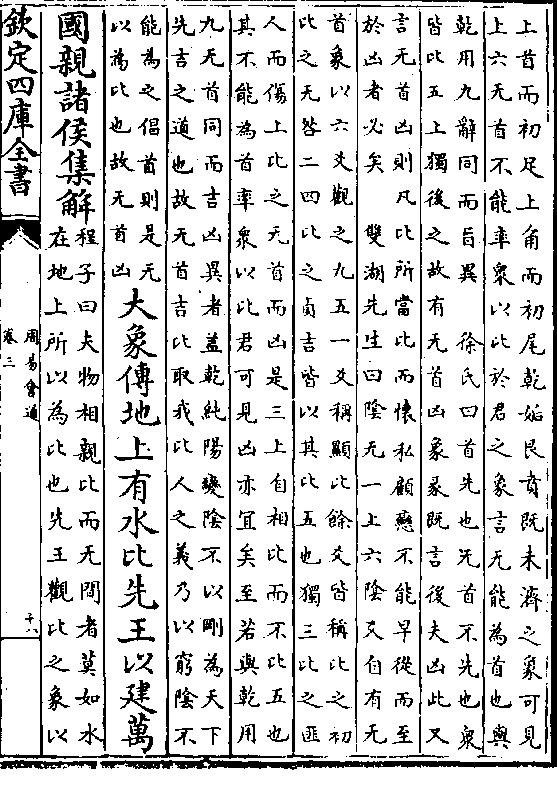 上首而初足上角而初尾乾姤艮賁既未濟之象可見
上六无首不能率衆以比於君之象言无能為首也與
乾用九辭同而㫖異　徐氏曰首先也无首不先也衆
皆比五上獨後之故有无首凶象彖既言後夫凶此又
言无首凶則凡比所當比而懐私顧戀不能早從而至
於凶者必矣　雙湖先生曰隂无一上六隂爻自有无
首象以六爻觀之九五一爻稱顯比餘爻皆稱比之初
比之无咎二四比之貞吉皆以其比五也獨三比之匪
人而傷上比之无首而凶是三上自相比而不比五也
其不能為首率衆以比君可見凶亦宜矣至若與乾用
九无首同而吉凶異者蓋乾純陽變隂不以剛為天下
先吉之道也故无首吉比取我比人之義乃以窮隂不
能為之倡首則是无
以為比也故无首凶
大象傳地上有水比先王以建萬
國親諸侯集解
程子曰夫物相親比而无間者莫如水
在地上所以為比也先王觀比之象以
欽定四庫全書
周易會通
卷三
十八